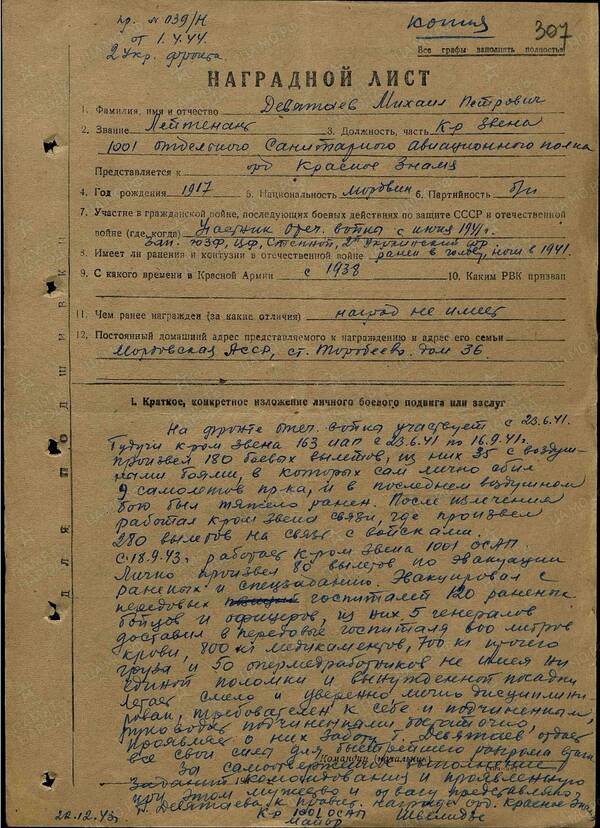 пр. № 039/Н
от 1.4.44.
2 Укр. фронта
копия
307
Все графы заполнять полностью
НАГРАДНОЙ ЛИСТ
1. Фамилия, имя и отчество Девятаев Михаил Петрович
2. Звание Лейтенант 3. Должность, часть К-р звена
1001 отдельного Санитарного авиационного полка
Представляется к орд Красное Знамя
4. Год рождения 1917 5. Национальность мордвин 6. Партийность б/п
7. Участие в гражданской войне, последующих боевых действиях по защите СССР и отечественной
войне (где, когда) Участник отеч. войны с июня 1941 г.
Зап. ЮЗФ, Ц.Ф, Степной, 2й Украинский фр
8. Имеет ли ранения и контузии в отечественной войне ранен в голову, ноги в 1941.
9. С какого времени в Красной Армии с 1938 10. Каким РВК призван
11. Чем ранее награжден (за какие отличия) наград не имеет
12. Постоянный домашний адрес представляемого к награждению и адрес его семьи
Мордовская АССР, ст. Торбеево. дом 36.
I. Краткое, конкретное изложение личного боевого подвига или заслуг
На фронте отеч. войны участвует с 23.6.41.
Будучи к-ром звена 163 ИАП с 23.6.41 по 16.9.41 г.
произвел 180 боевых вылетов, из них 35 с воздуш-
ными боями, в которых сам лично сбил
9 самолетов пр-ка, и в последнем воздушном
бою был тяжело ранен. После излечения
работал к-ром звена связи, где произвел
280 вылетов на связь с войсками.
с 18.9.43 г. работает к-ром звена 1001 ОСАП.
Лично произвел 80 вылетов по эвакуации
раненых и спецзаданию. Эвакуировал с
передовых госпиталей 120 раненых
бойцов и офицеров, из них 5 генералов
доставил в передовые госпиталя 600 литров
крови, 800 кг медикаментов, 700 кг прочего
груза и 50 опермедработников не имея ни
единой поломки и вынужденной посадки
Летает смело и уверенно лично дисциплини-
рован, требователен к себе и подчиненным,
руководит подчиненными достаточно,
проявляет о них заботу т. Девятаев, отдает
все свои силы для быстрейшего разгрома врага
Командир (начальник)
За самоотверженное выполнение
заданий командования и проявленную
при этом мужество и отвагу представляю
т. Девятаева к правит. награде орд. Красное Зна
К-р 1001 ОСАП
майор
22.12.43 г.
ДЛЯ ПОДШИВКИ